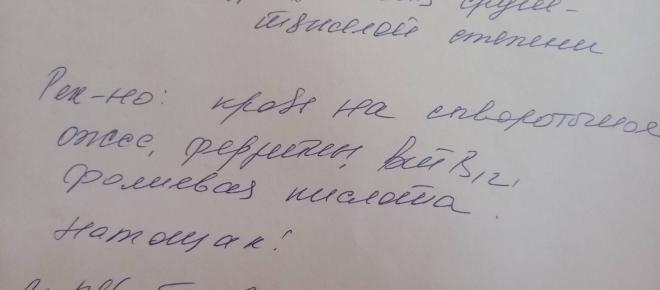 средне-
тяжелой степени
Рек-но: кровь на сывороточное
ожсс, ферритин, вит B12,
фолиевая кислота.
Натощак!